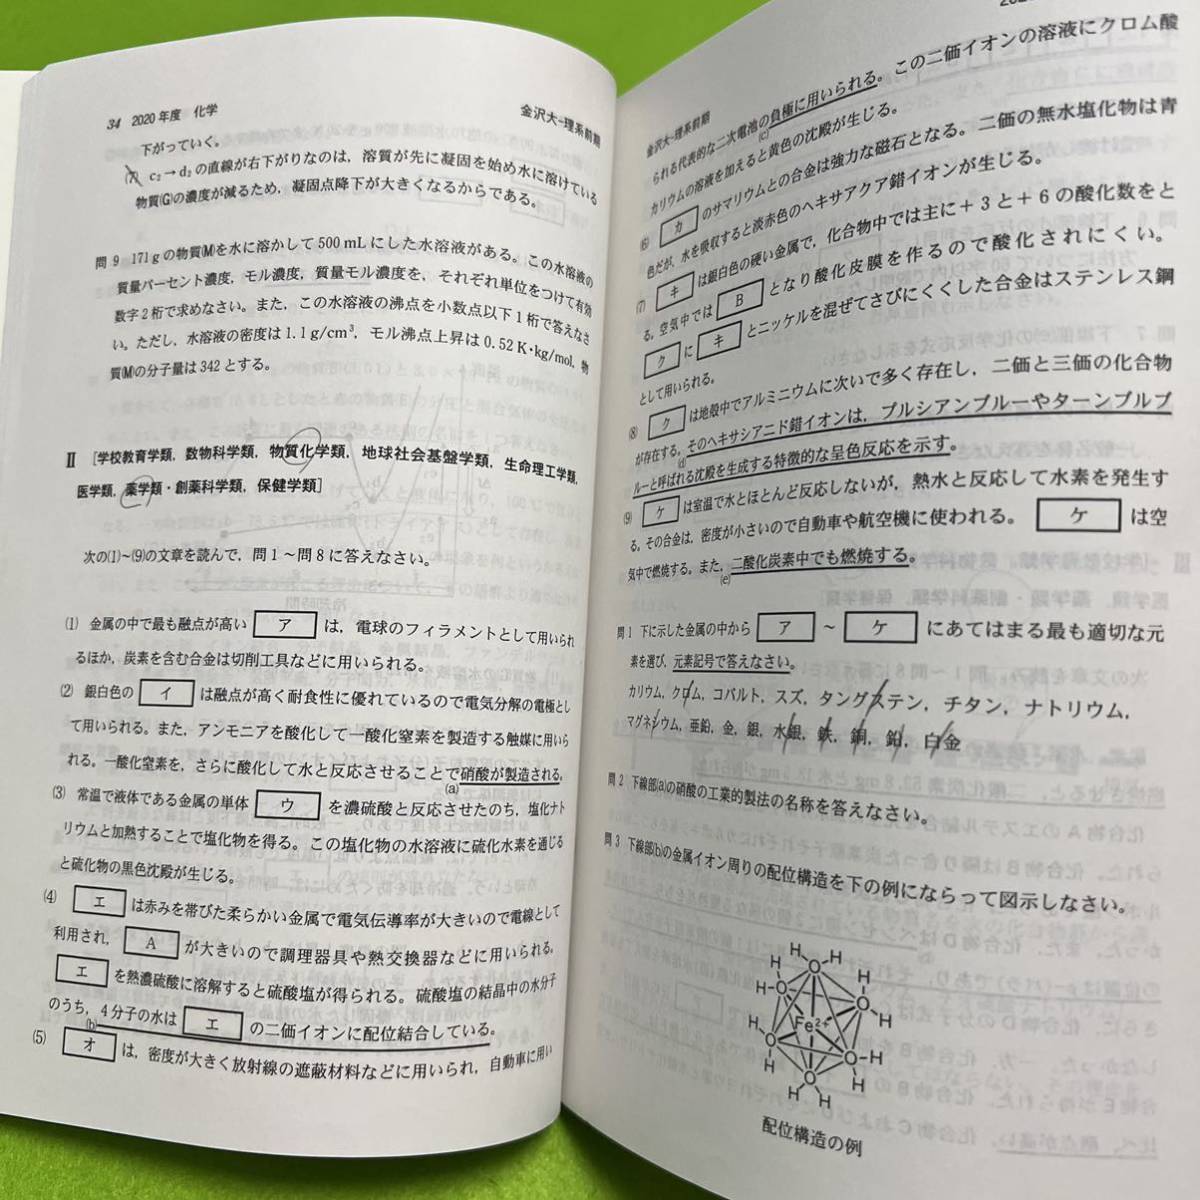 34 2020年度 化学
金沢大-理系前期
下がっていく。
(7) c₂→d₂の直線が右下がりなのは，溶質が先に凝固を始め水に溶けている
物質(G)の濃度が減るため，凝固点降下が大きくなるからである。
問9 171gの物質(M)を水に溶かして500mLにした水溶液がある。この水溶液の
質量パーセント濃度，モル濃度，質量モル濃度を，それぞれ単位をつけて有効
数字2桁で求めなさい。また，この水溶液の沸点を小数点以下1桁で答えなさ
い。ただし，水溶液の密度は1.1g/cm³，モル沸点上昇は0.52K・kg/mol，物
質(M)の分子量は342とする。
Ⅱ [学校教育学類，数物科学類，物質化学類，地球社会基盤学類，生命理工学類，
医学類，薬学類・創薬科学類，保健学類]
次の(1)~(9)の文章を読んで，問1~問8に答えなさい。
(1) 金属の中で最も融点が高い ア は，電球のフィラメントとして用いられ
るほか，炭素を含む合金は切削工具などに用いられる。
(2) 銀白色の イ は融点が高く耐食性に優れているので電気分解の電極とし
て用いられる。また，アンモニアを酸化して一酸化窒素を製造する触媒に用いら
れる。一酸化窒素を，さらに酸化して水と反応させることで硝酸が製造される。
(a)
(3) 常温で液体である金属の単体 ウ を濃硫酸と反応させたのち，塩化ナト
リウムと加熱することで塩化物を得る。この塩化物の水溶液に硫化水素を通じる
と硫化物の黒色沈殿が生じる。
(4) エ は赤みを帯びた柔らかい金属で電気伝導率が大きいので電線として
利用され， A が大きいので調理器具や熱交換器などに用いられる。
エ を熱濃硫酸に溶解すると硫酸塩が得られる。硫酸塩の結晶中の水分子
のうち，4分子の水は エ の二価イオンに配位結合している。
(b)
(5) オ は，密度が大きく放射線の遮蔽材料などに用いられ，自動車に用い
金沢大-理系前期
られる代表的な二次電池の負極に用いられる。この二価イオンの溶液にクロム酸
(c)
カリウムの溶液を加えると黄色の沈殿が生じる。
(6) カ のサマリウムとの合金は強力な磁石となる。二価の無水塩化物は青
色だが，水を吸収すると淡赤色のヘキサアクア錯イオンが生じる。
(7) キ は銀白色の硬い金属で，化合物中では主に+3と+6の酸化数をと
る。空気中では B となり酸化皮膜を作るので酸化されにくい。
ク に キ とニッケルを混ぜてさびにくくした合金はステンレス鋼
として用いられる。
(8) ク は地殻中でアルミニウムに次いで多く存在し，二価と三価の化合物
が存在する。そのヘキサシアニド錯イオンは，プルシアンブルーやターンブルブ
(d)
ルーと呼ばれる沈殿を生成する特徴的な呈色反応を示す。
(9) ケ は室温で水とほとんど反応しないが，熱水と反応して水素を発生す
る。その合金は，密度が小さいので自動車や航空機に使われる。 ケ は空
気中で燃焼する。また，二酸化炭素中でも燃焼する。
(e)
問1 下に示した金属の中から ア ~ ケ にあてはまる最も適切な元
素を選び，元素記号で答えなさい。
カリウム，クロム，コバルト，スズ，タングステン，チタン，ナトリウム，
マグネシウム，亜鉛，金，銀，水銀，鉄，銅，鉛，白金
問2 下線部(a)の硝酸の工業的製法の名称を答えなさい。
問3 下線部(b)の金属イオン周りの配位構造を下の例にならって図示しなさい。
H H
O
H O O H
H H
Fe²⁺
H O O H
H H
O
H H
配位構造の例